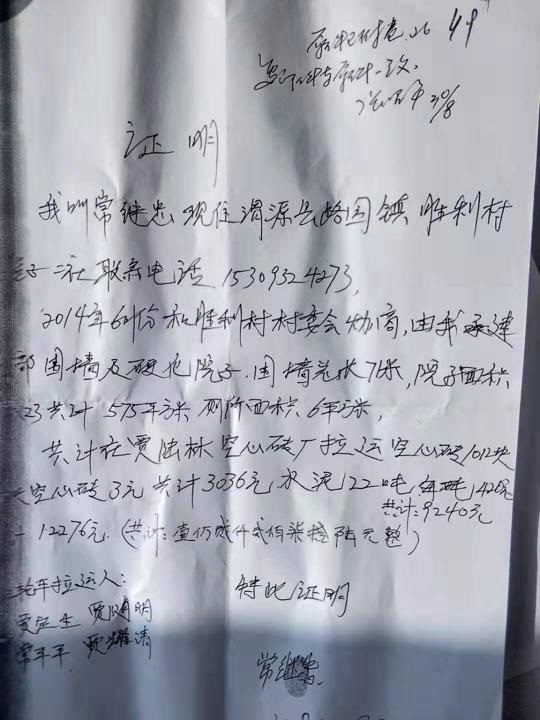 49
证明
我叫常继忠现住渭源县路园镇胜利村
二社联系电话 15309324273,
2014年6月份和胜利村村委会协商,由我承建
部围墙及硬化院子.围墙总长71米,院子面积
23共计575平方米厕所面积6平方米,
共计在贾陆林空心砖厂拉运空心砖1012块
空心砖3元共计3036元,水泥22吨,每吨420元
共计:9240元
12276元.(共计:壹仟贰仟贰佰柒拾陆元整)
轮车拉运人: 特此证明
贾 生 贾 明
常平平 贾耀清
常继忠